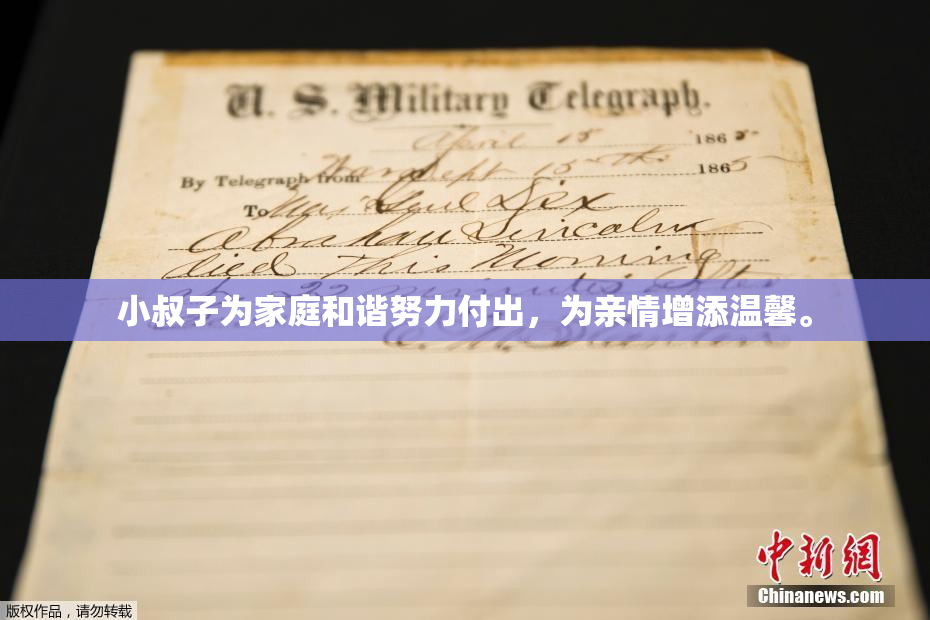 U. S. Military Telegraph.
April 15 1865
By Telegraph from War Dept 15th 1865
To Maj Genl Dix
Abraham Lincoln
died This Morning
22 minutes after
小叔子为家庭和谐努力付出，为亲情增添温馨。
E. M. Stanton
中新网
Chinanews.com
版权作品，请勿转载